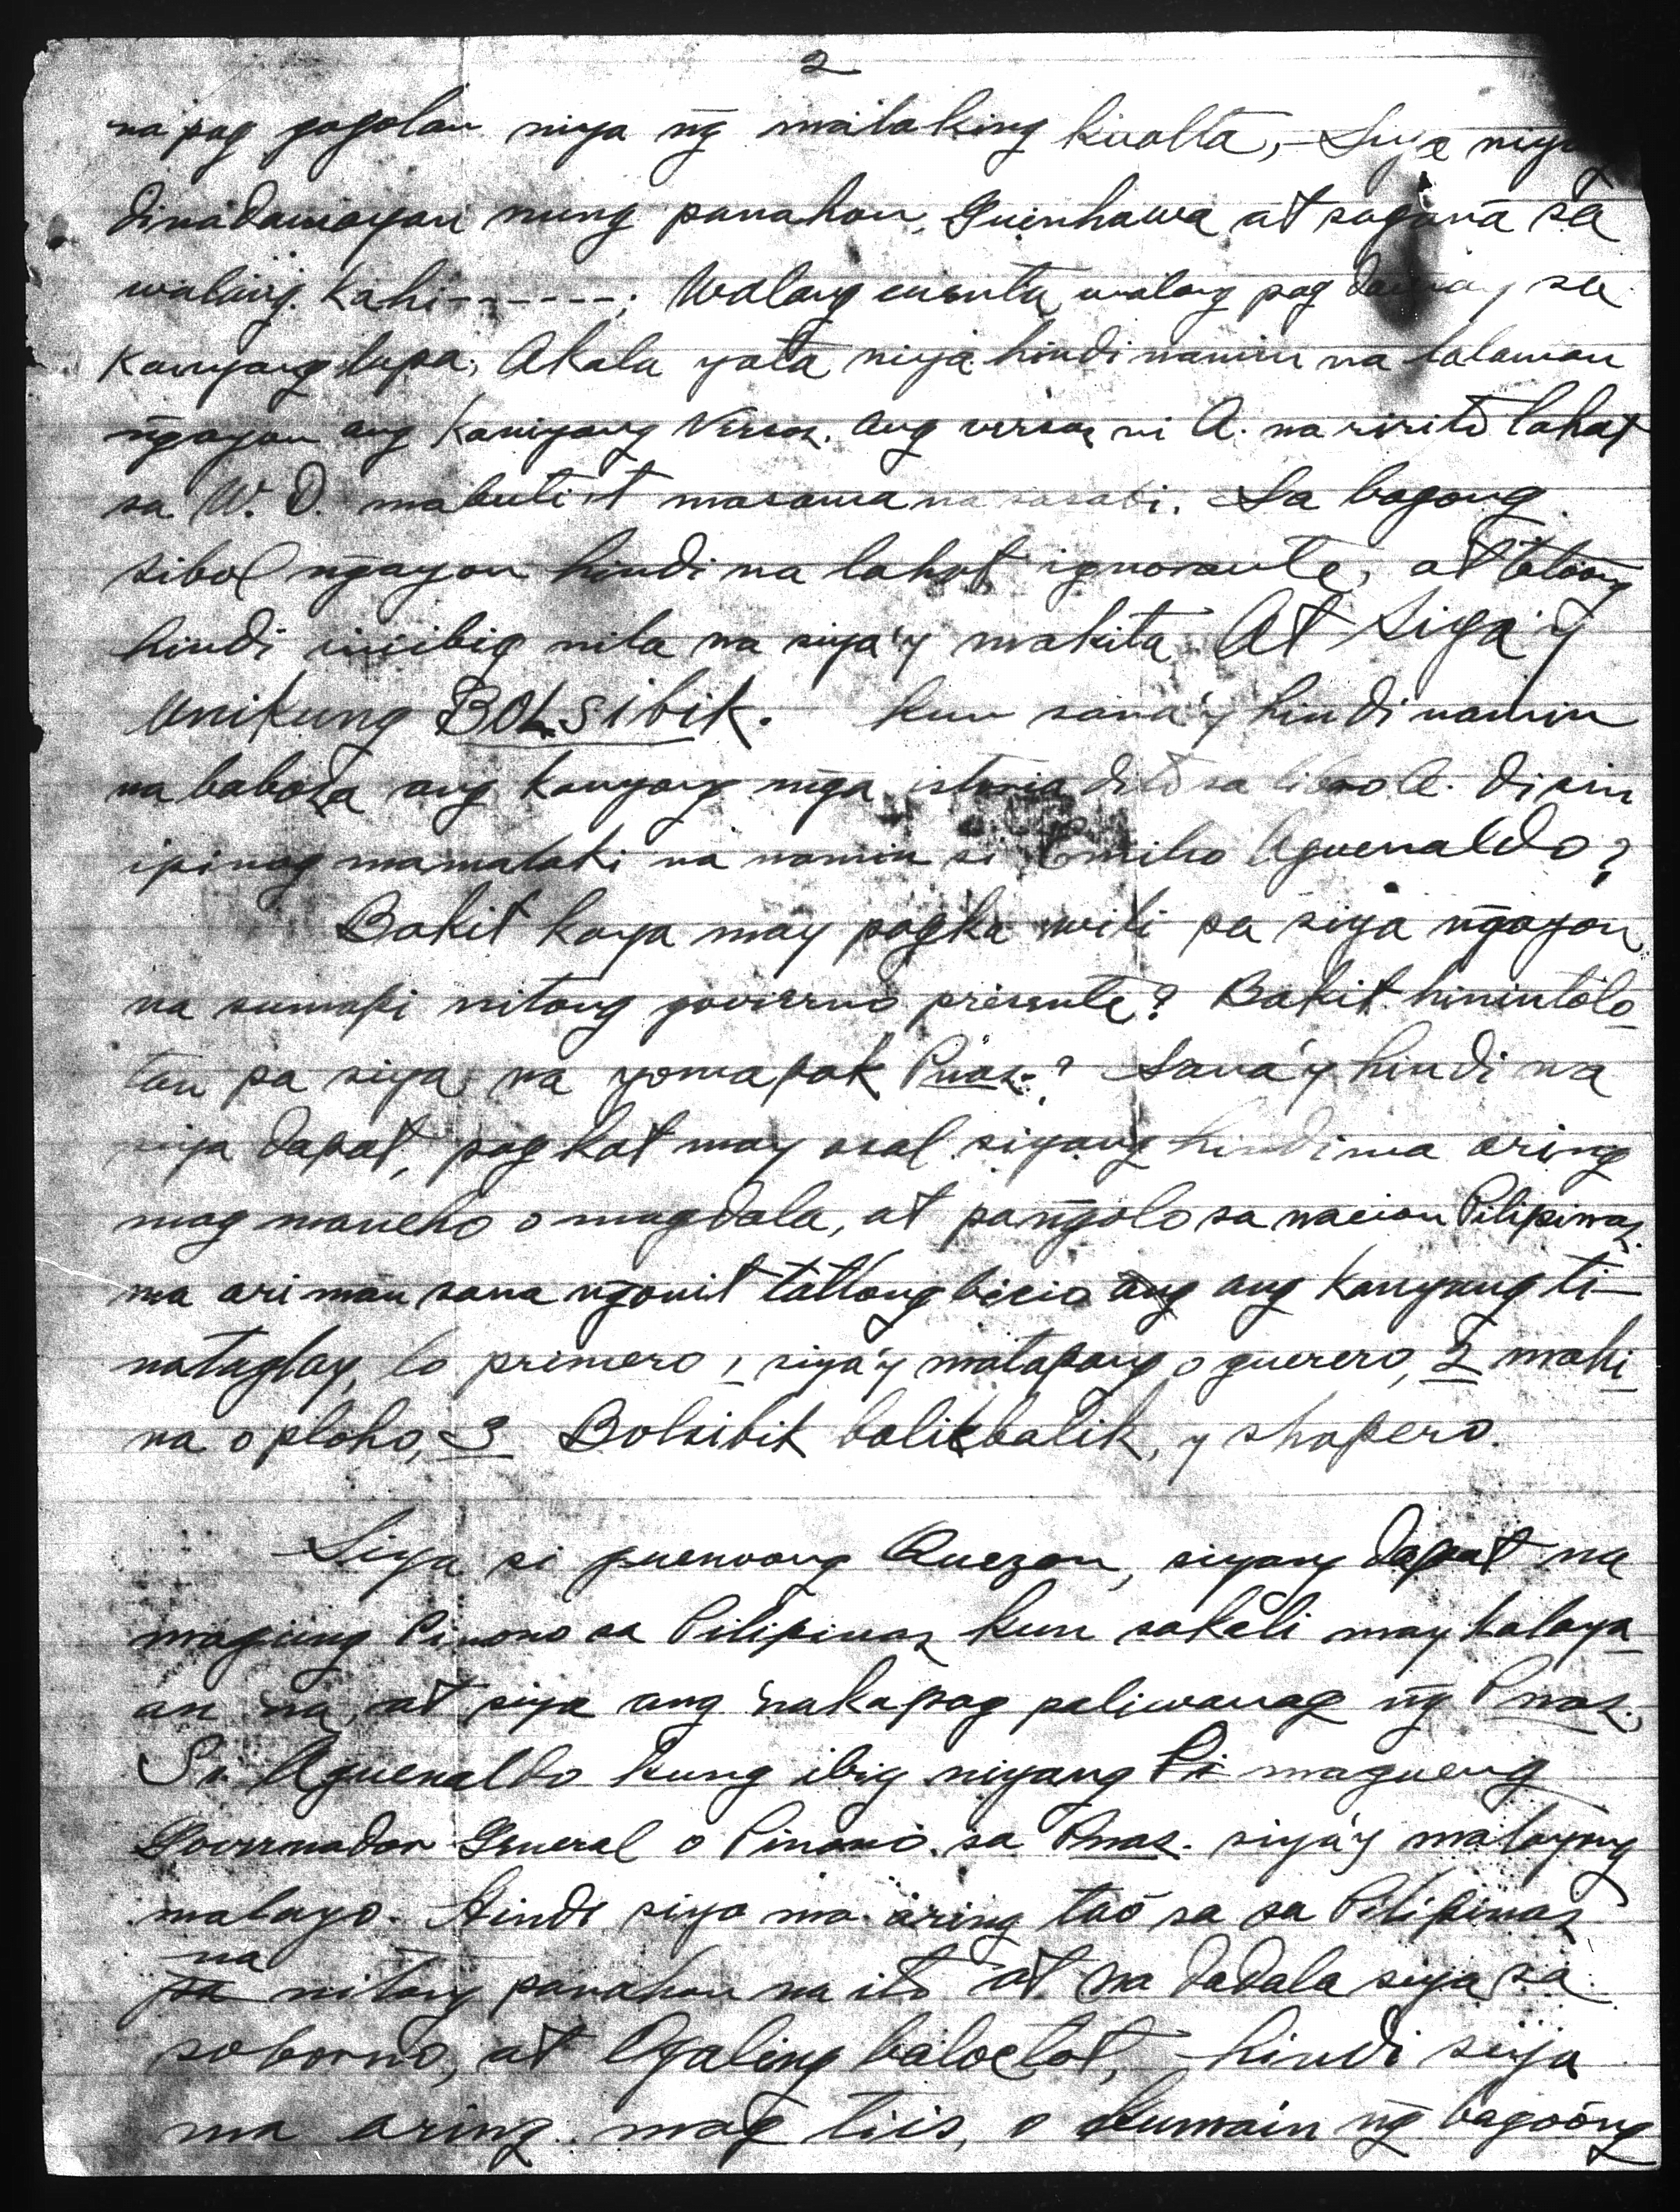 2
na pag gogolan niya ng malaking kuolta, - Siya niy
dinadamayan nung panahon, Guinhawa at sagana sa
walang. Kahi------; Walang cuenta, walang pag damay sa
kanyang lupa, Akala yata niya hindi namin na lalaman
ngayon ang kaniyang Versos. ang versos ni A. na ririto lahat
sa W. D. mabuti't masama na sasabi. Sa bagong
sibol ngayon hindi na lahat ignorante, at totoong
hindi iniibig nila na siya'y makita. At Siya'y
unikung BOLSIBIK. Kun sana'y hindi namin
na babasa ang kanyang mga istoria dito sa libro A. di sin
ipinag mamalaki na namin si Emilio Aguenaldo?
Bakit kaya may pagka wili pa siya ngayon
na sumapi nitong govierno presente? Bakit hinintolo-
tan pa siya na yomapak Pinas.? Sana'y hindi na
siya dapat, pagkat may asal siyang hindi ma aring
mag maneho o magdala, at pangolo sa nacion Pilipinas
ma ari man sana ngonit tatlong bicio ang kanyang ti-
nataglay, lo primero, 1 siya'y matapang o guerero, 2 mahi-
na o ploho, 3 Bolsibik balikbalik, y shapero.
Siya si guenoong Quezon, siyang dapat na
maging Pinono sa Pilipinas kun sakali may kalaya-
an na, at siya ang nakapag paliwanag ng Pnas.,
Sr. Aguenaldo kung ibig niyang magueng
Governador General o Pinono sa Pnas. siya'y malayong
malayo. Hindi siya ma aring tao sa sa Pilipinas
na nitong panahon na ito at na dadala siya sa
soborno, at Ogaling baloctot, - hindi siya
ma aring mag tiis, o kumain ng bagoong